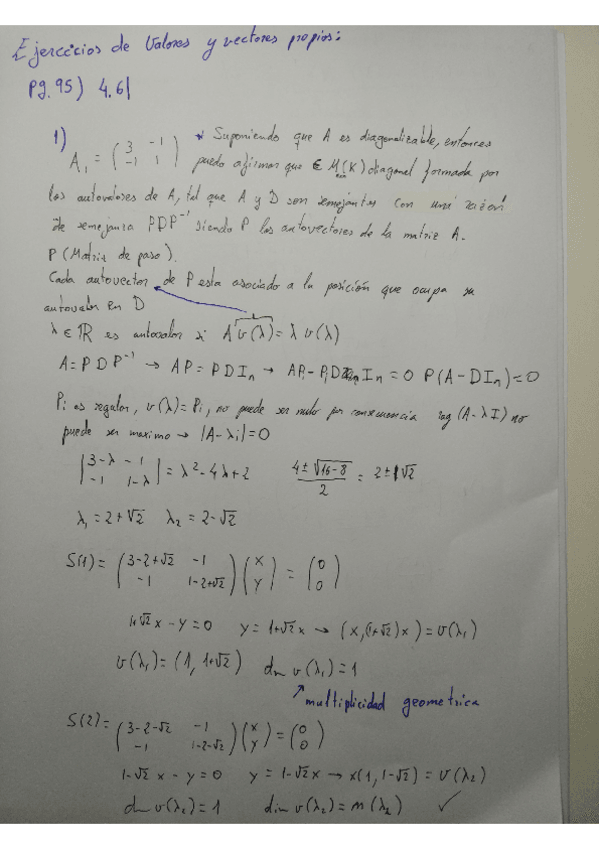 Ejercicios de Valores y vectores propios:
Pg. 95) 4.6|
1) A₁ = (3 -1; -1 1) * Suponiendo que A es diagonalizable, entonces
puedo afirmar que ∈ M(K) diagonal formada por
los autovalores de A, tal que A y D son semejantes con una razón
de semejanza PDP⁻¹ siendo P los autovectores de la matriz A.
P (Matriz de paso).
Cada autovector de P esta asociado a la posición que ocupa su
autovalor en D
λ ∈ ℝ es autovalor si A v(λ) = λ v(λ)
A = PDP⁻¹ → AP = PDIₙ → APᵢ - PᵢD Iₙ = 0 P(A - DIₙ) = 0
Pᵢ es regular, v(λ) = Pᵢ, no puede ser nulo por consecuencia rag (A - λI) no
puede ser maximo → |A - λi| = 0
|3-λ -1; -1 1-λ| = λ² - 4λ + 2 (4 ± √16-8)/2 = 2 ± √2
λ₁ = 2+√2 λ₂ = 2-√2
S(1) = (3-2+√2 -1; -1 1-2+√2) (x; y) = (0; 0)
1+√2 x - y = 0 y = 1+√2 x → (x, (1+√2)x) = v(λ₁)
v(λ₁) = (1, 1+√2) dm v(λ₁) = 1
multiplicidad geometrica
S(2) = (3-2-√2 -1; -1 1-2-√2) (x; y) = (0; 0)
1-√2 x - y = 0 y = 1-√2 x → x(1, 1-√2) = v(λ₂)
dm v(λ₂) = 1 dim v(λ₂) = m(λ₂) ✓